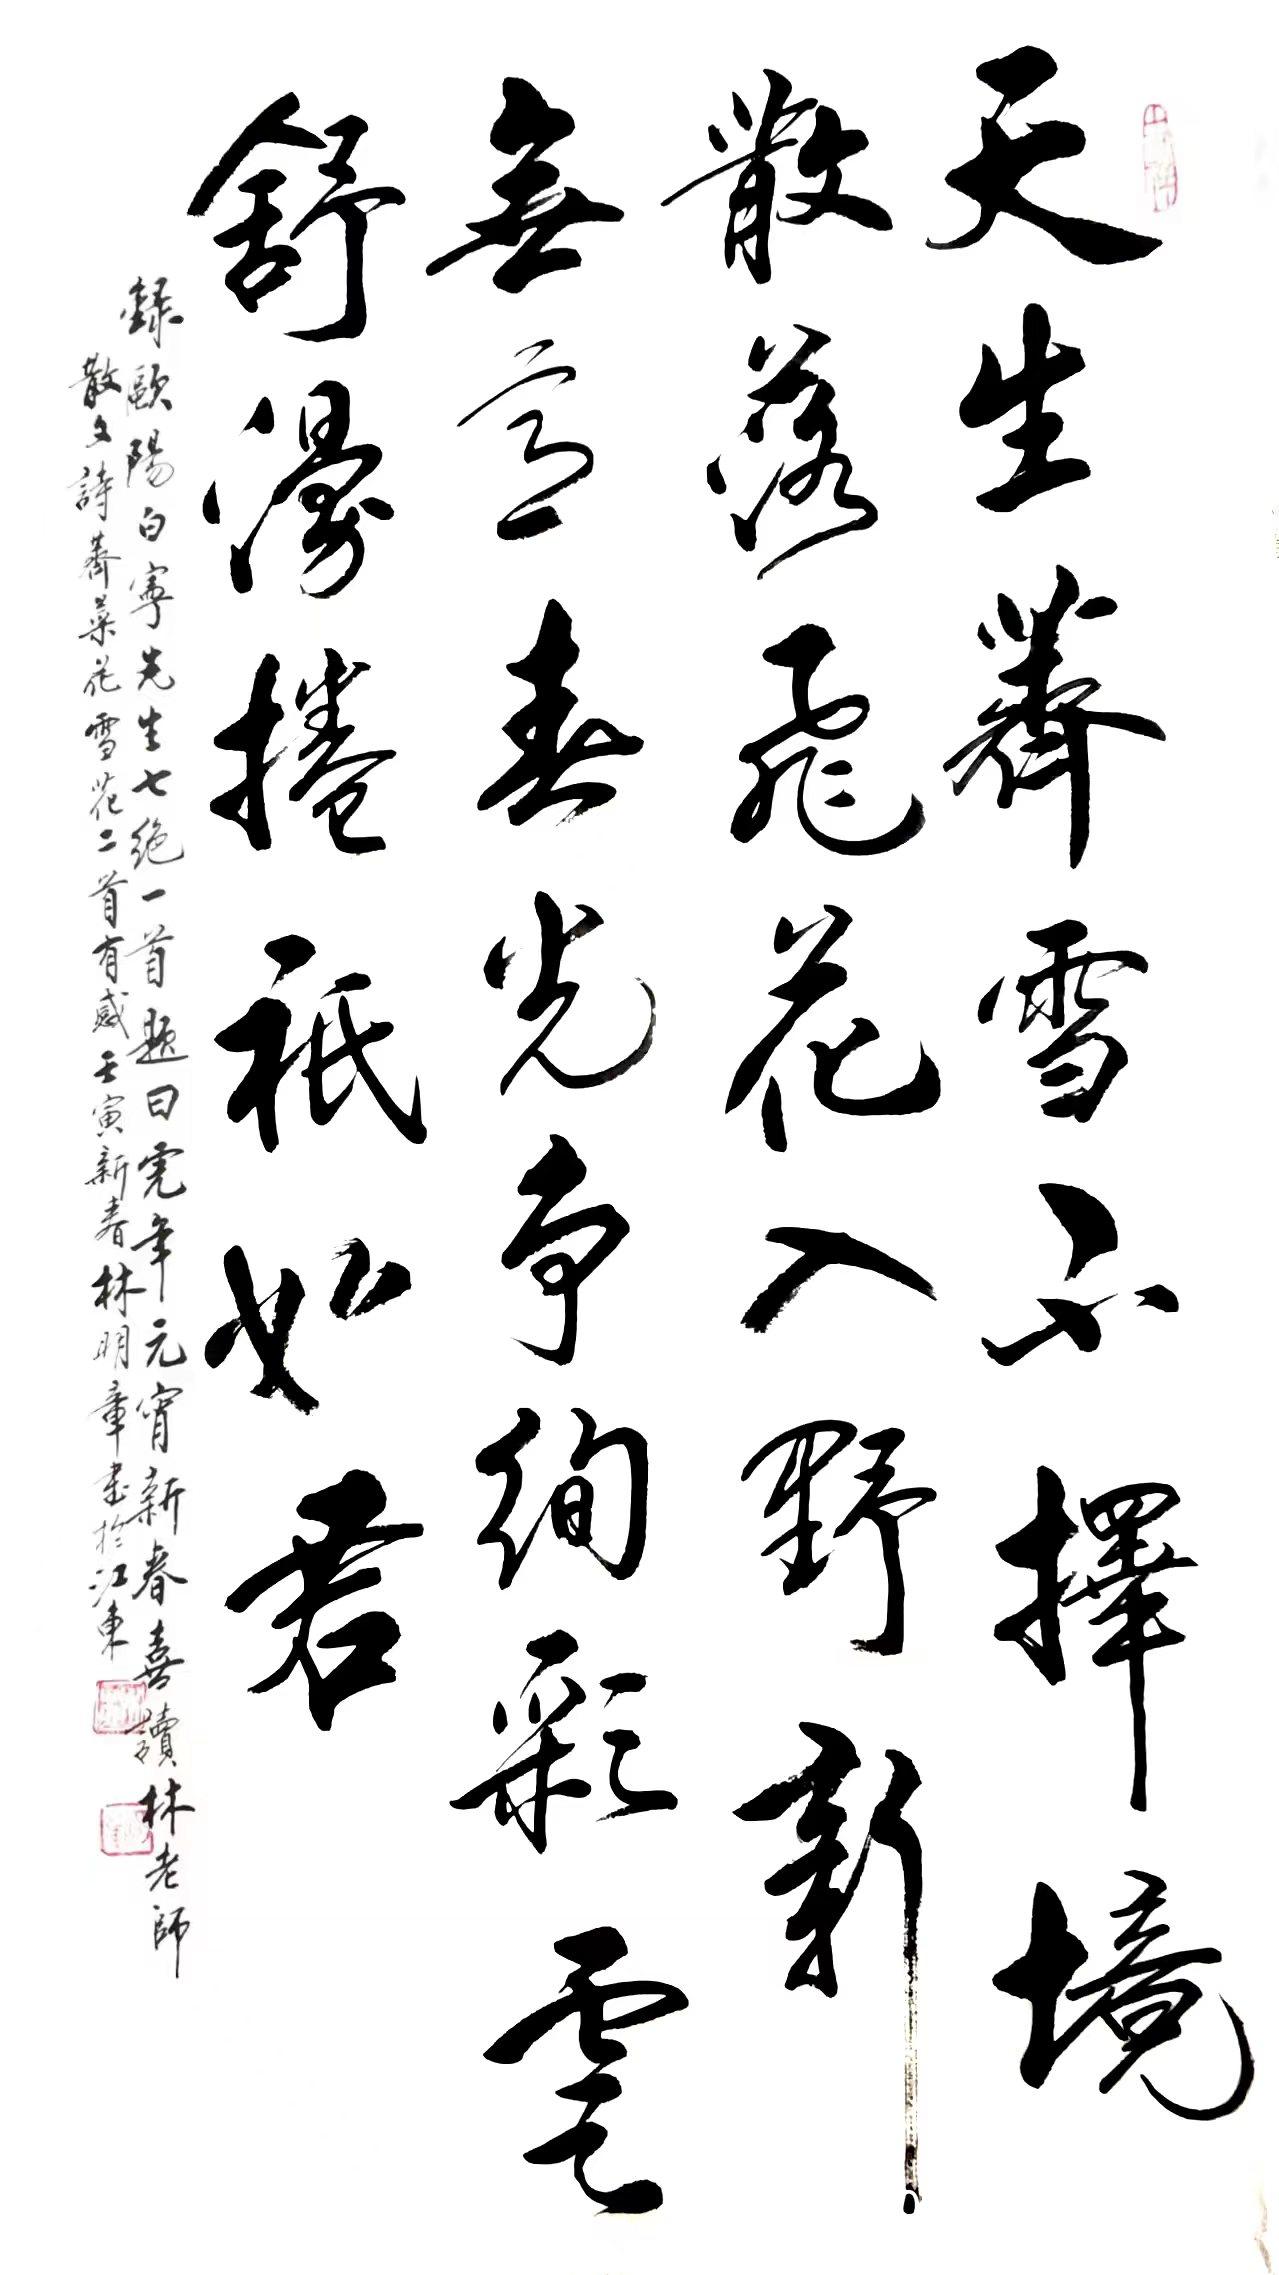 天生薺雪不擇境
散落飛花入野新
無意春光争絢彩雲
舒漫捲祇如君
錄歐陽白寧先生七絕一首題曰虎年元宵新春喜讀林老師
散文詩薺菜花雪花二首有感壬寅新春林明章書於江東